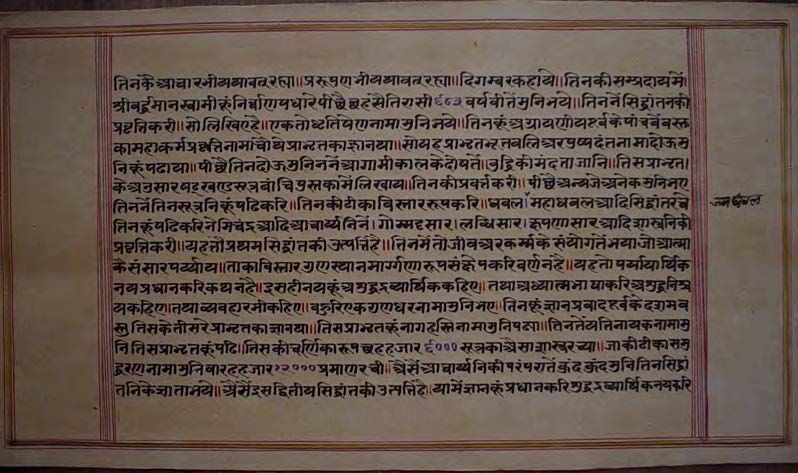 तिनकै आचारभी यथावत् रह्या॥ प्ररूपणाभी यथावत् रह्या॥ दिगम्बर कहाये॥ तिनकी सम्प्रदायमें।
श्रीवर्द्धमानस्वामीकूं निर्वाण पधारे पीछै छहसैतियासी ६८३ वर्ष बीतें मुनि भये॥ तिननें सिद्धांतनकी
प्रवृत्ति करी॥ सो लिखिए है॥ एक तो धरसेण नामा मुनि भये॥ तिनकूं अग्रायणीय पूर्वके पांचवें वस्तु
का महाकर्मप्रकृतिनामा चौथे प्राभृतका ज्ञान था॥ सो यह प्राभृत भूतबलि अर पुष्पदंत नामा दोऊ मु
निकूं पढाया॥ पीछै तिन दोऊ मुनिननें आगामी कालके दोषतें। बुद्धिकी मंदता जानि॥ तिस प्राभृत।
के अनुसार षट्खण्ड सूत्र बांचि पुस्तकामें लिखाय॥ तिनकी प्रवृत्ति करी॥ पीछै अन्य जे अनेक मुनि भए
तिननें तिन सूत्रनिकूं पढि करि। तिनकी टीका विस्ताररूप करि॥ धवल महाधवल आदि सिद्धांत रचे
जयधवल
तिनकूं पढि करि नेमिचंद्र आदि आचार्यनिनें। गोम्मट्टसार। लब्धिसार। क्षपणासार आदि शास्त्रनिकी
प्रवृत्ति करी॥ यह तौ प्रथम सिद्धांतकी उत्पत्ति है॥ तिनमें तो जीव अर कर्मके संयोगतें भया जो आत्मा
कै संसार पर्याय॥ ताका विस्तार गुणस्थान मार्गणारूप संक्षेप करि वर्णन है॥ यह तो पर्यायार्थिक
नय प्रधान करि कथन है॥ इसही नयकूं अशुद्धद्रव्यार्थिक कहिए॥ तथा अध्यात्मभाषा करि अशुद्धनिश्च
य कहिए॥ तथा व्यवहारभी कहिए॥ बहुरि एक गुणधरनामा मुनि भए॥ तिनकूं ज्ञानप्रवाद पूर्वके दशम व
स्तु तिसके तीसरे प्राभृतका ज्ञान था॥ तिस प्राभृतकूं नागहस्ति नामा मुनि पढ्या॥ तिनतें यतिनायकनामा मु
नि तिस प्राभृतकूं पढि॥ तिसकी चूर्णिकारूप छह हजार ६००० सूत्रका शास्त्र रच्या॥ जाकी टीका समु
द्धरणनामा मुनि बारह हजार १२००० प्रमाण रची॥ अैसें आचार्यनिकी परंपरातें कुंदकुंद मुनि तिन सिद्धां
तनिके ज्ञाता भये॥ अैसें इस द्वितीय सिद्धांतकी उत्पत्ति है॥ यामें ज्ञानकूं प्रधान करि शुद्धद्रव्यार्थिकनय करि